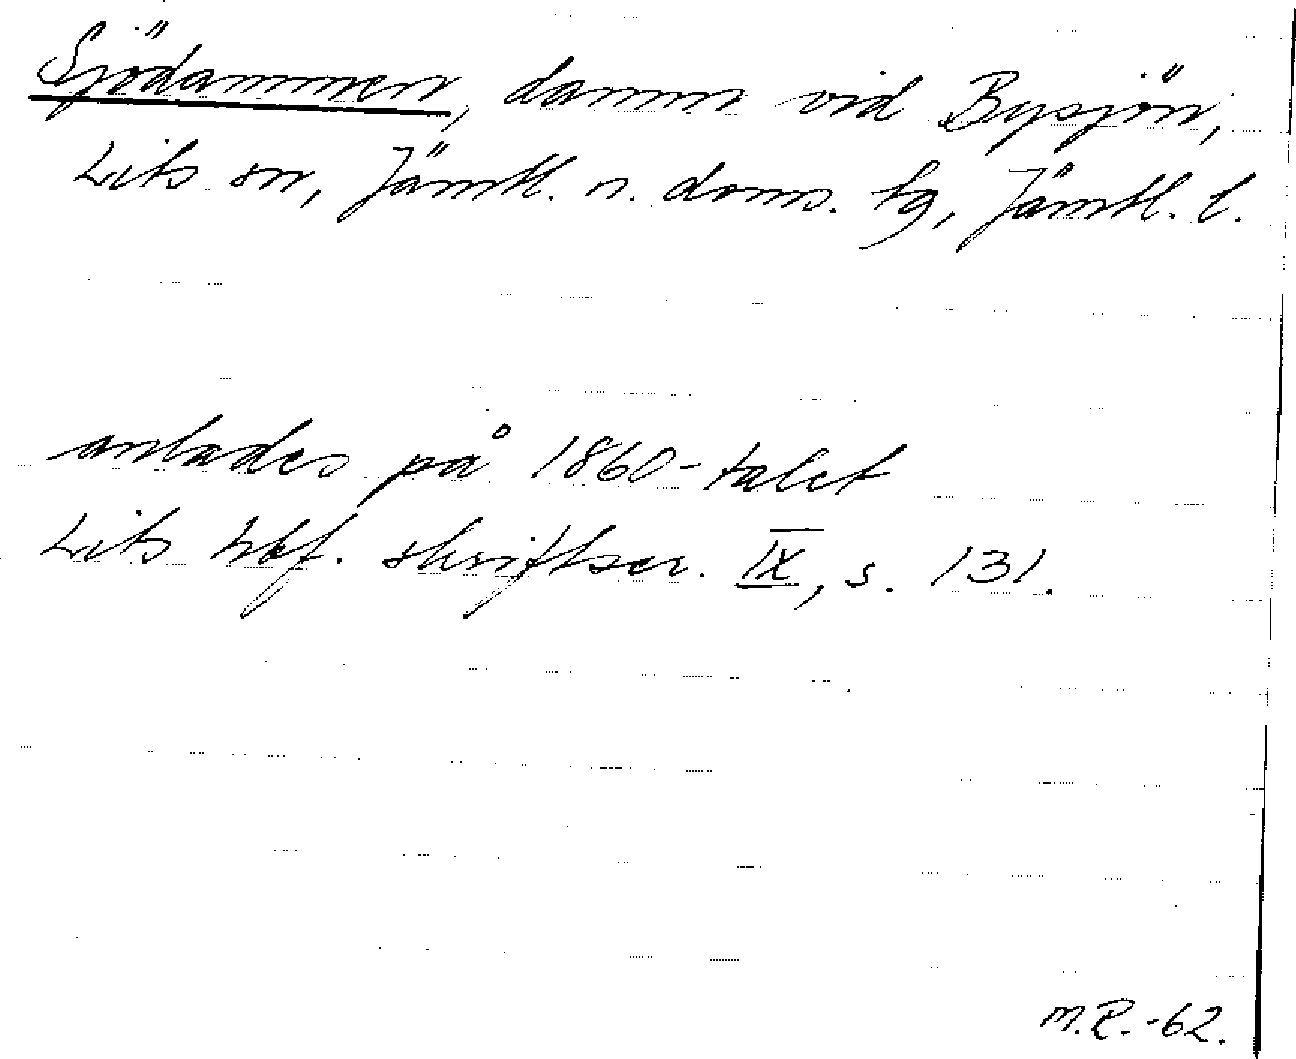 Sjödammen, damm vid Bysjön,
Lits sn, Jämtl. n. doms. tg, Jämtl. l.
anlades på 1860-talet
Lits hbf. skriftser. IX, s. 131.
M.R.-62.